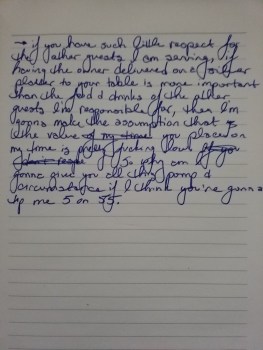 → if you have such little respect for
the other guests I am serving, if
having the owner delivered on a silver
platter to your table is more important
than the food & drinks of the other
guests I'm responsible for, then I'm
gonna make the assumption that is
the value of my time you place on
my time is pretty fucking low. If you
don't So why am I
gonna give you all this pomp &
circumstance if I think you're gonna
tip me 5 on 55.